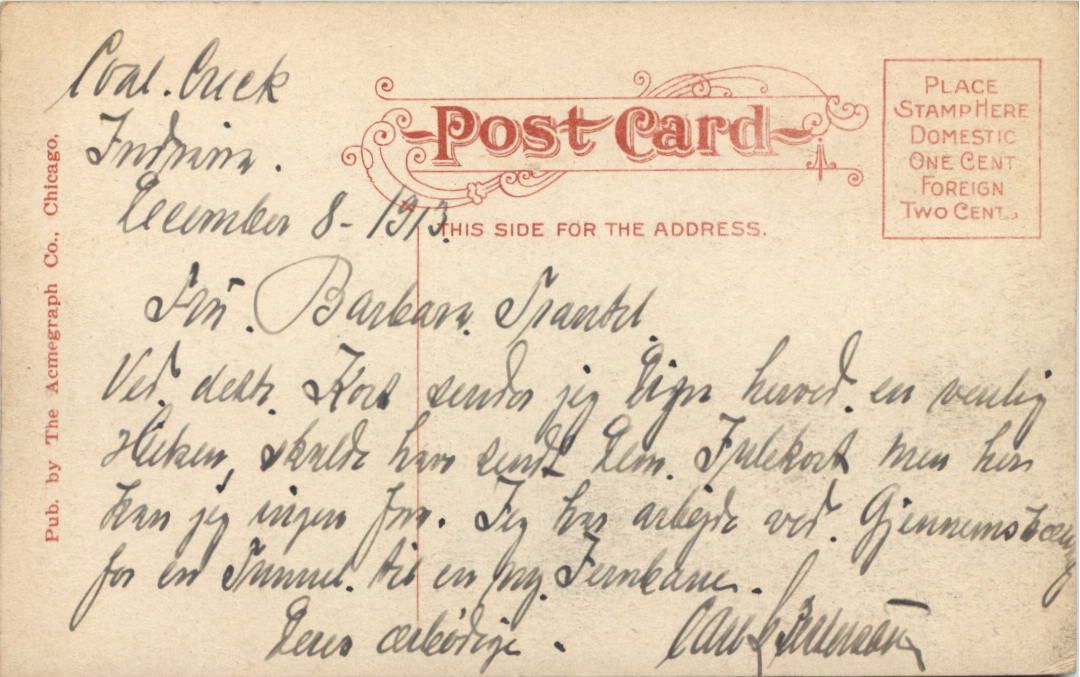 Coal. Creek
Indiana.
December 8 - 1913.
Post Card
THIS SIDE FOR THE ADDRESS.
PLACE
STAMP HERE
DOMESTIC
ONE CENT
FOREIGN
TWO CENTS
Pub. by The Acmegraph Co., Chicago.
Frü. Barbara.
Ved. dette. Kort sender jeg herved. en venlig
Hilsen, skulde have sendt Dem. Julekort men her
kan jeg ingen faa. Jeg har arbejde ved. Gjennemskæring
for en Tunnel. til en ny. Jernbane.
Deres ærbødige.
Carl